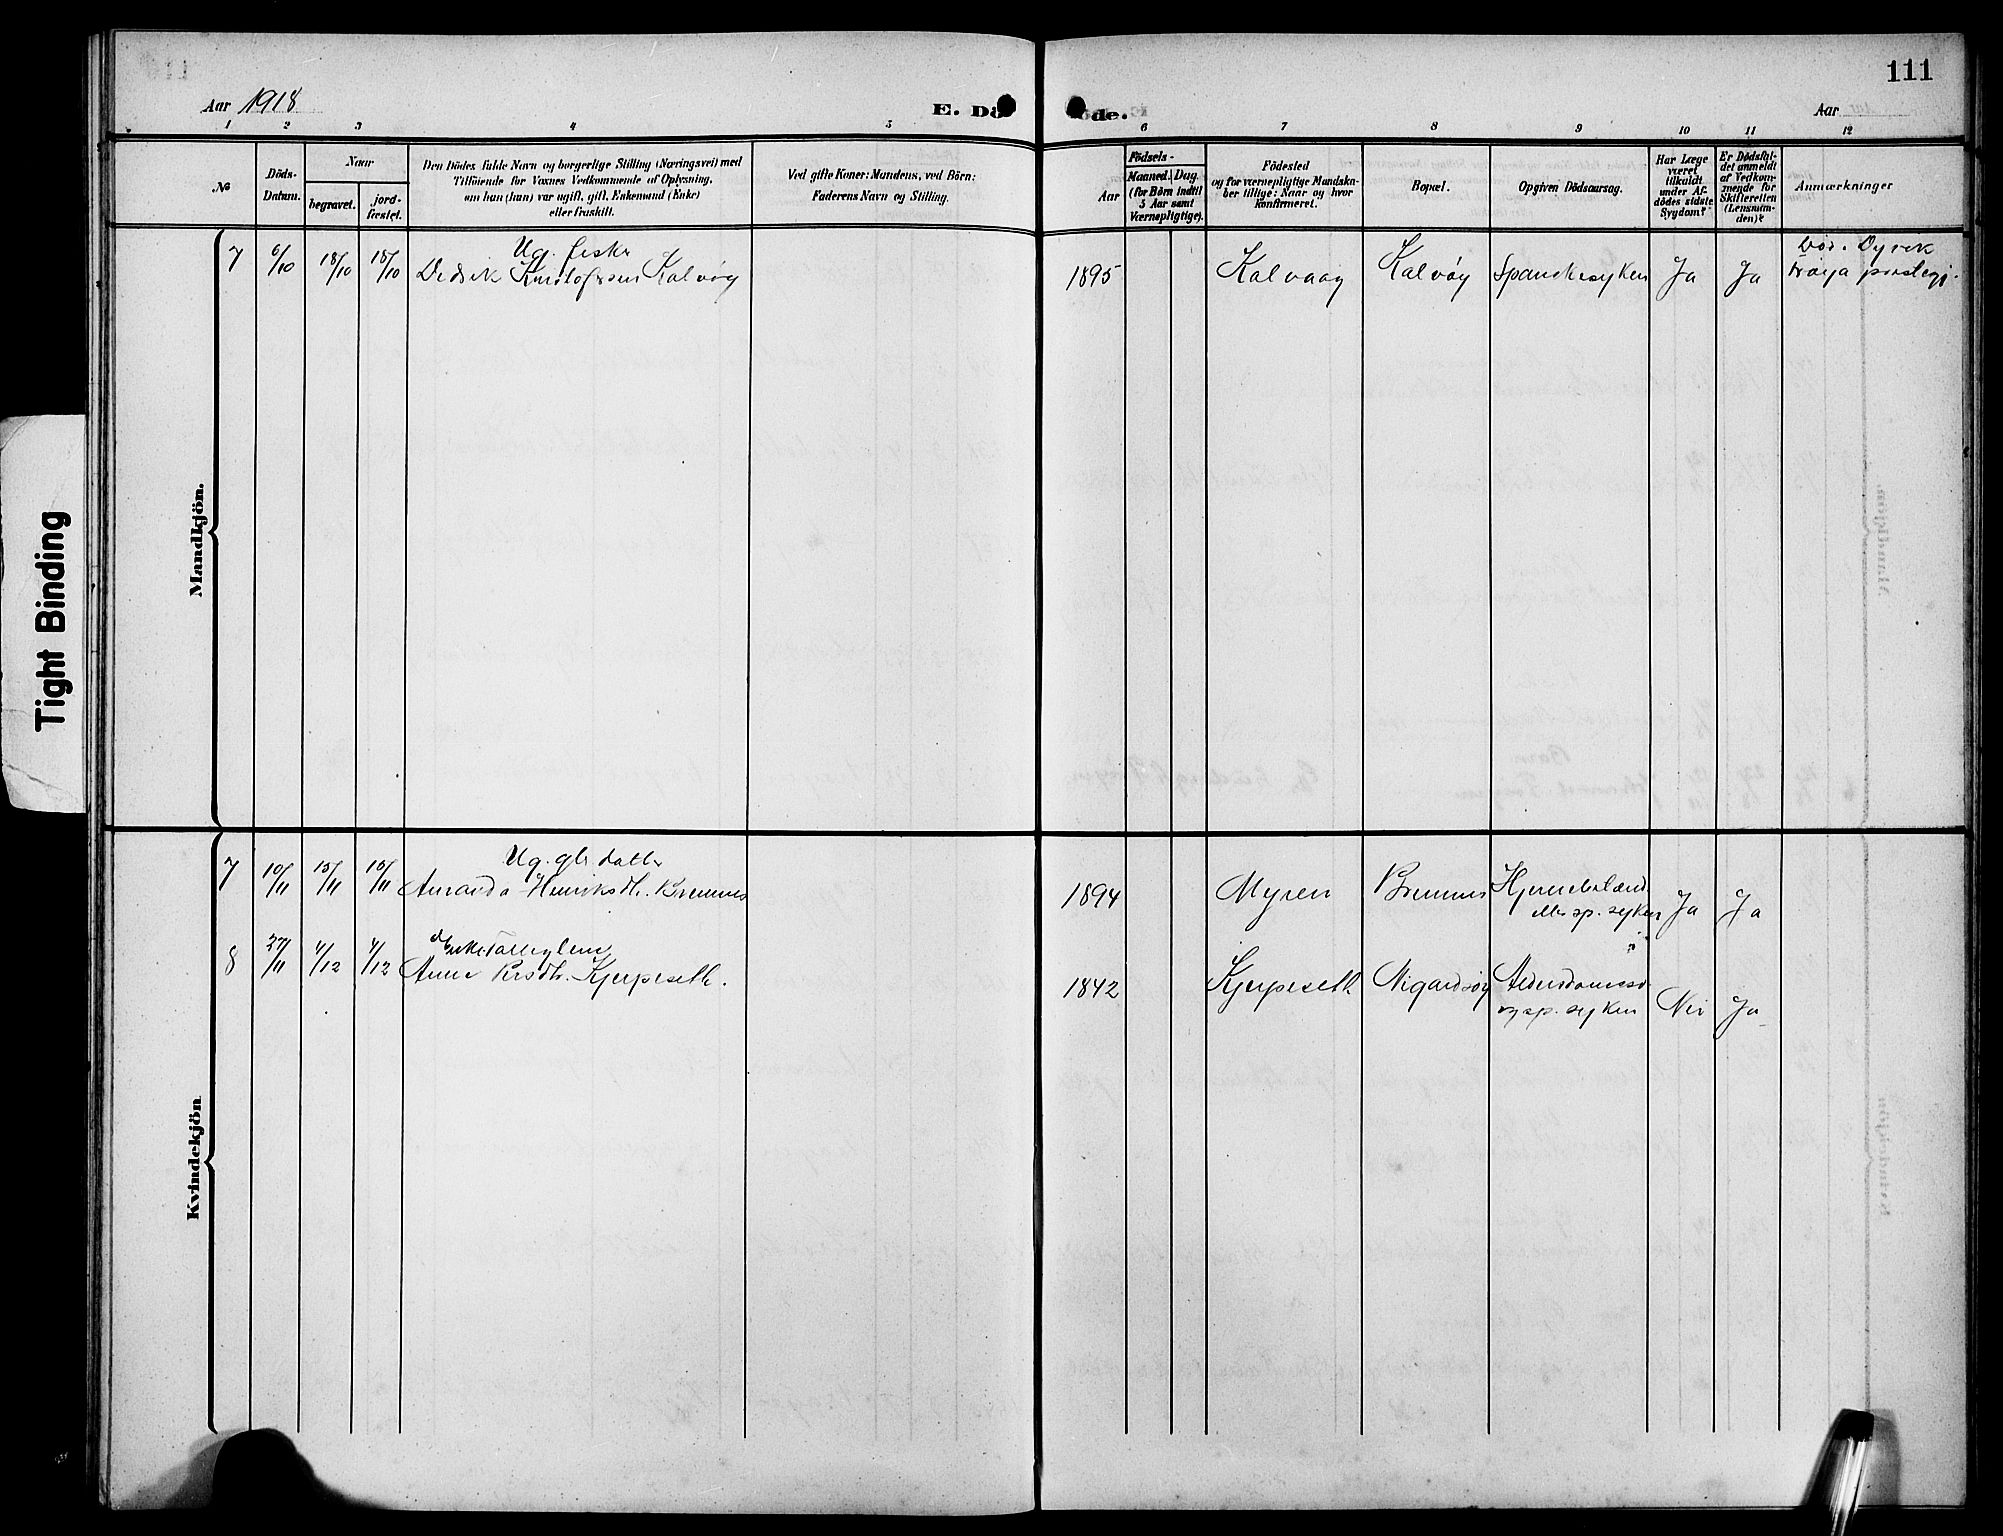 111
Aar 1918
E. Dö
öde.
Aar
1 2 3 4 5 6 7 8 9 10 11 12
No
Döds-
Datum.
Naar
begravet.
jord-
fæstet.
Den Dödes fulde Navn og borgerlige Stilling (Næringsvei) med
Tilföiende for Voxnes Vedkommende af Oplysning,
om hun (han) var ugift, gift, Enkemand (Enke)
eller fraskilt.
Ved gifte Koner: Mandens, ved Börn:
Faderens Navn og Stilling.
Aar
Födsels-
Maaned. Dag.
(for Börn indtil
5 Aar samt
Værnepligtige).
Födested
og for værnepligtige Mandska-
ber tillige: Naar og hvor
konfirmeret.
Bopæl.
Opgiven Dödsaarsag.
Har Læge
været
tilkaldt
under Af-
dödes sidste
Sygdom?
Er Dödsfal-
det anmeldt
af Vedkom-
mende for
Skifteretten
(Lensman-
den)?
Anmærkninger
Mandkjön.
7 6/10 18/10 18/10 Ug. fisker
Didrik Knutofersen Kalvøy
1895 Kalvaag Kalvøy Spanskesyken Ja Ja
Kvindekjön
7 10/11 15/11 15/11 Ug. gbr datter
Amanda Henriksdtr. Bremnes
1894 Myren Bremnes
efter sp. syken Ja Ja
8 27/11 4/12 4/12
Anne Persdtr. Kjerpeseth.
1842 Kjerpeseth Nigardsøy
og sp. syken Nei Ja
Tight Binding